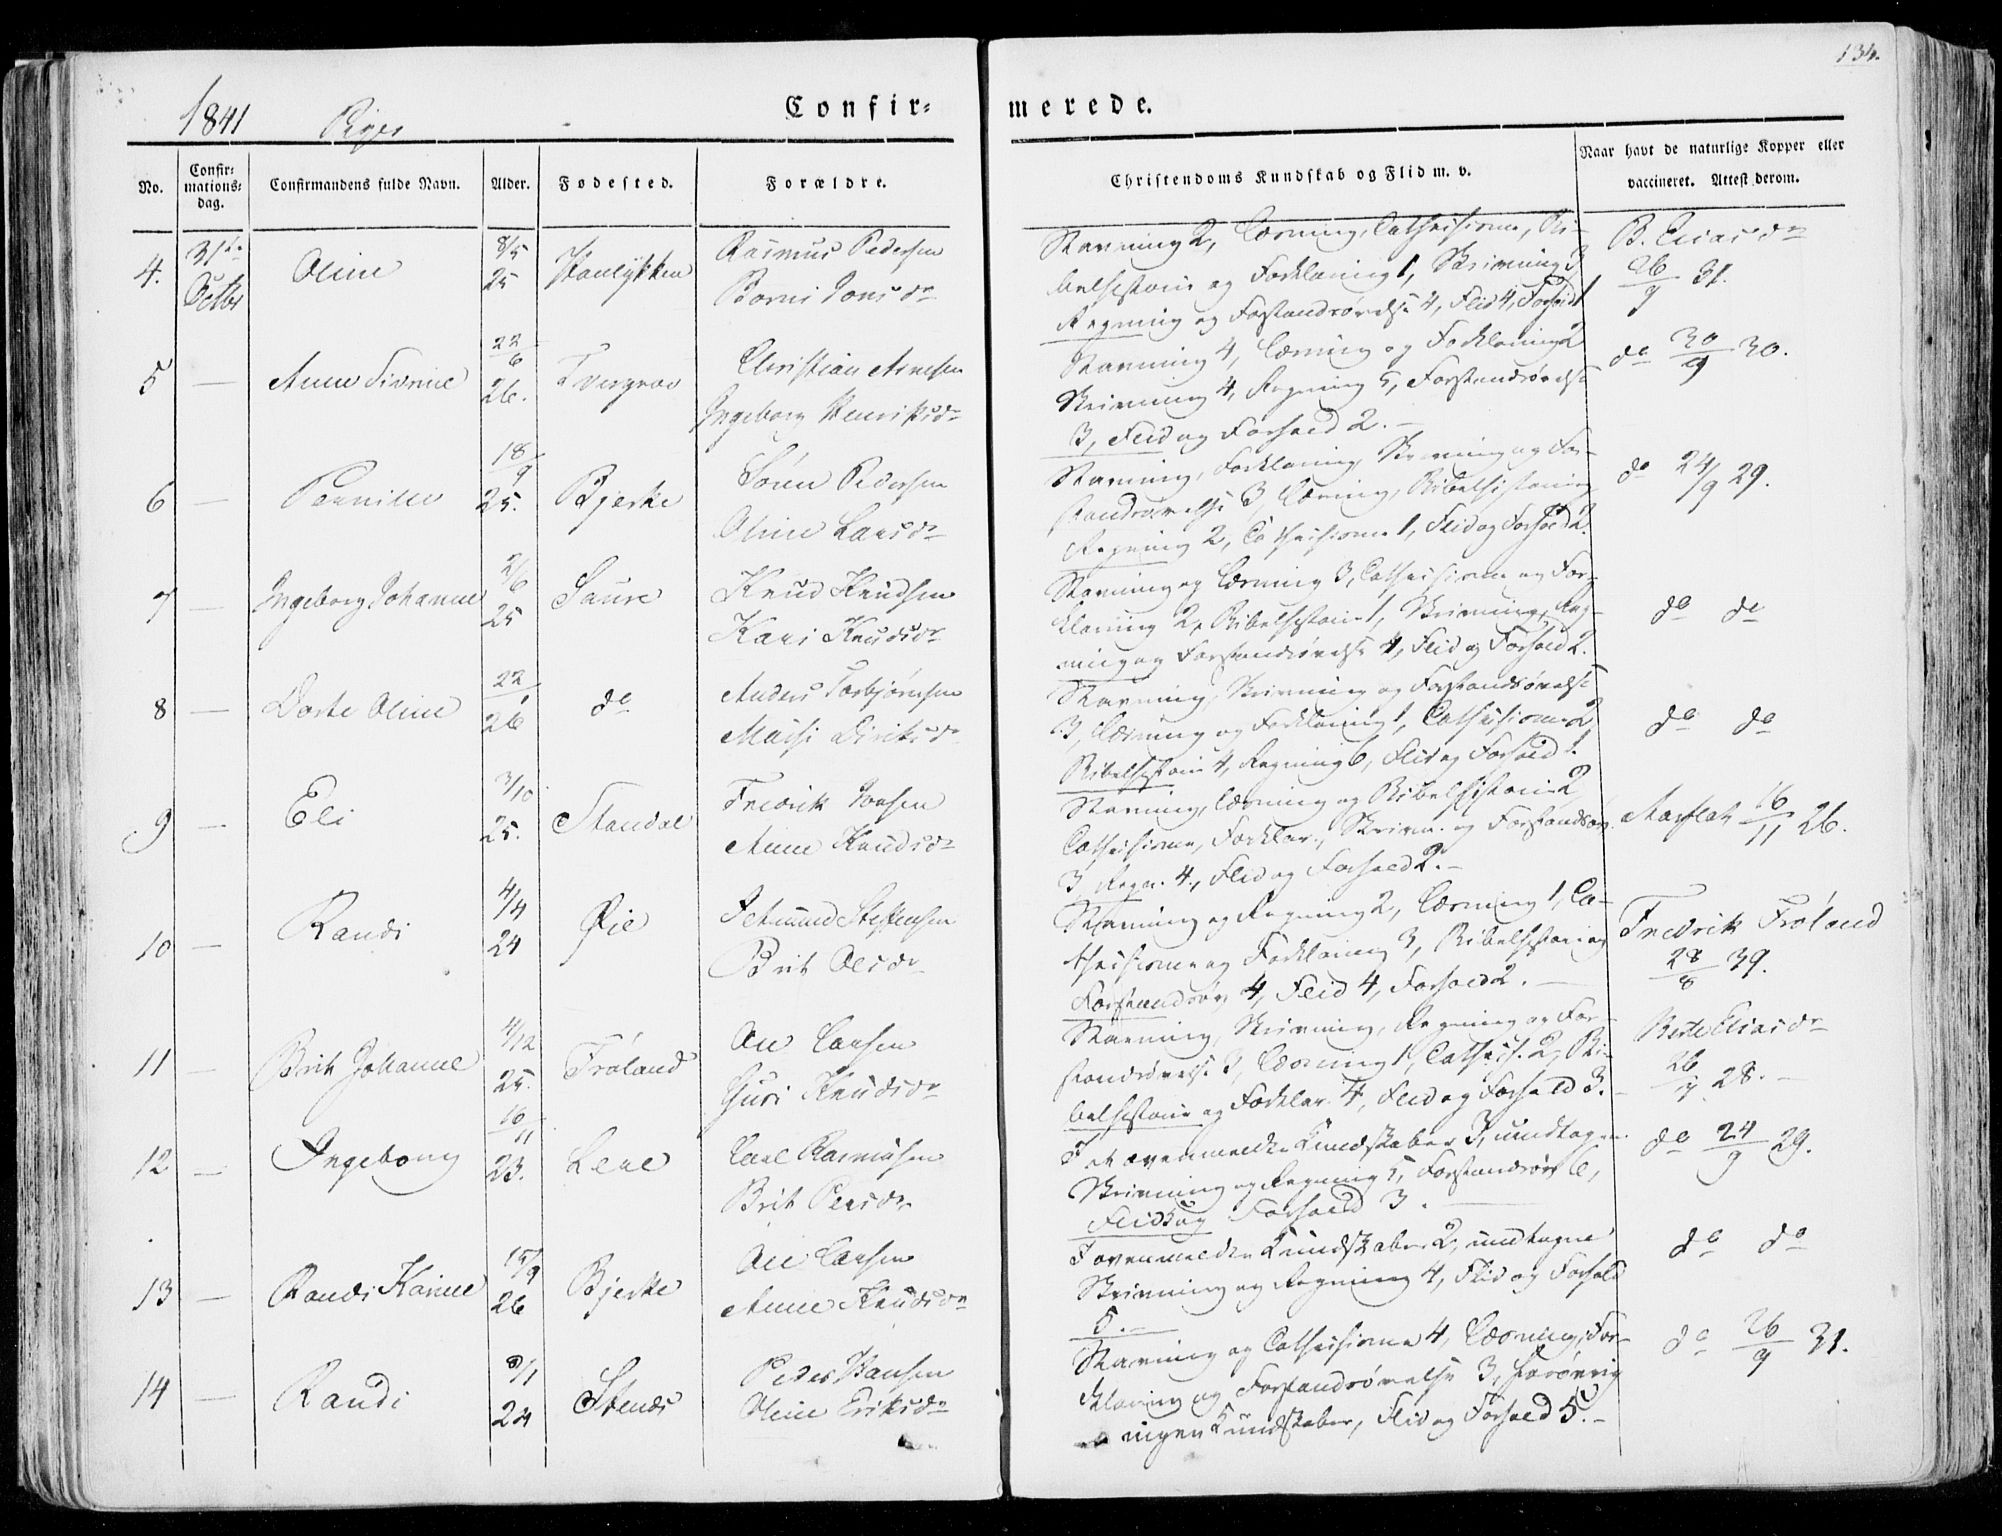 134.
1841 Piger
Confir- merede.
No.
Confirmations- dag.
Confirmandens fulde Navn.
Alder.
Fødested.
Forældre.
Christendoms Kundskab og Flid m. v.
Naar havt de naturlige Kopper eller
vaccineret. Attest derom.
4. 31te Octbr Oline 8/5 25 Rasmus Pedersen
Jons dr
Stavning 2, Læsning, Cathechisme, Bi-
belhistorie og Forklaring 1, Skrivning 3
Regning og Forstandsøvelse 4, Flid 4, Forhold 1
B. Elias dr
26/9 31.
5 — Anne Sivrine 22/6 26. Christian Arnesen
Ingeborg Henriks dr
Stavning 4, Læsning og Forklaring 2
Skrivning 4, Regning 5, Forstandsøvelse
3, Flid og Forhold 2. —
do 30/9 30.
6 — Pernille 18/9 25. Bjerke Søren Pedersen
Oline Lars dr
Stavning, Forklaring, Skrivning og For-
standsøvelse 3, Læsning, Bibelhistorie,
Regning 2, Cathechisme 1, Flid og Forhold 2.
do 24/9 29.
7 — Ingeborg Johanne 2/6 25 Saure Knud Knudsen
Kari Knuds dr
Stavning og Læsning 3, Cathechisme og For-
klaring 2, Bibelhistorie 1, Skrivning, Reg-
ning og Forstandsøvelse 4, Flid og Forhold 2.
do do
8 — Dorte Oline 22/1 26 do Anders Torbjørnsen
Diriks dr
Stavning, Skrivning og Forstandsøvelse
3, Læsning og Forklaring 1, Cathechisme 2
Bibelhistorie 4, Regning 6, Flid og Forhold 1.
do do
9 — Eli 3/10 25. Standal Fredrik Joesen
Anne Knuds dr
Stavning, Læsning og Bibelhistorie 2
Cathechisme, Forklar., Skrivn. og Forstandsøv.
3, Regn. 4, Flid og Forhold 2. —
Aarflot 16/11 26.
10 — Randi 4/4 24 Øie Steffensen
Brit Ols dr
Stavning og Regning 2, Læsning 1, Ca-
thechisme og Forklaring 3, Bibelhistorie og
Forstandsøv. 4, Flid 4, Forhold 2. —
Fredrik Frøland
28/8 39.
11 — Brit Johanne 4/12 25. Frøland Ole Larsen
Guri Knuds dr
Stavning, Skrivning, Regning og For-
standsøvelse 3, Læsning 1, Cathech. 2, Bi-
belhistorie og Forklar. 4, Flid og Forhold 3. —
Berte Elias dr
26/9 28. —
12 — Ingeborg 10/11 23. Lene Carl Rasmusen
Brit Peers dr
I de ovenmeldte Kundskaber 3, undtagen
Skrivning og Regning 5, Forstandsøv. 6,
Flid og Forhold 3. —
do 24/9 29.
13 — Randi Karine 15/9 26 Bjerke Ole Larsen
Anne Knuds dr
I ovenmeldte Kundskaber 2, undtagen
Skrivning og Regning 4, Flid og Forhold
5. —
do do
14 — Randi 8/1 24 Stenes Peder Hansen
Oline Eriks dr
Stavning og Cathechisme 4, Læsning, For-
klaring og Forstandsøvelse 3, forøvrig
ingen Kundskaber, Flid og Forhold 5. —
do 26/9 31.